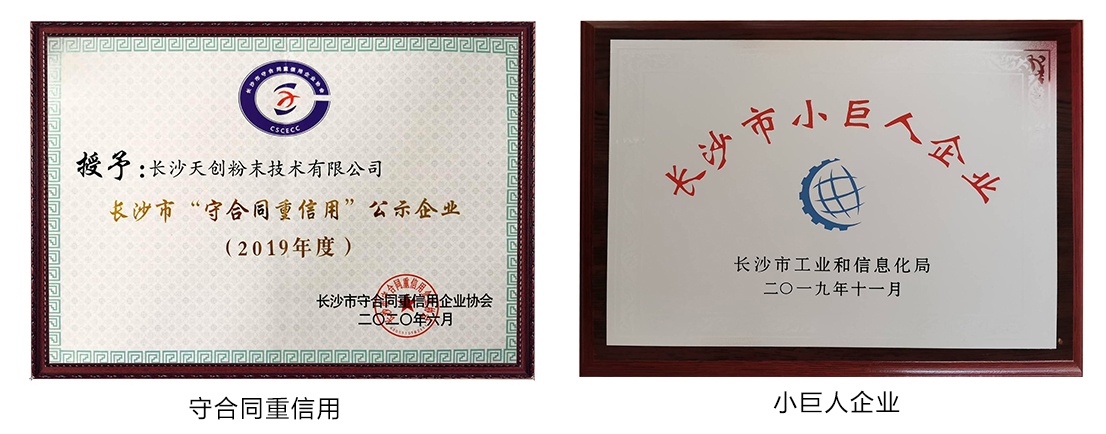 长沙市守合同重信用企业协会
CSCECC
授予:长沙天创粉末技术有限公司
长沙市“守合同重信用”公示企业
(2019年度)
长沙市守合同重信用企业协会
二〇二〇年六月
守合同重信用
长沙市小巨人企业
长沙市工业和信息化局
二〇一九年十一月
小巨人企业